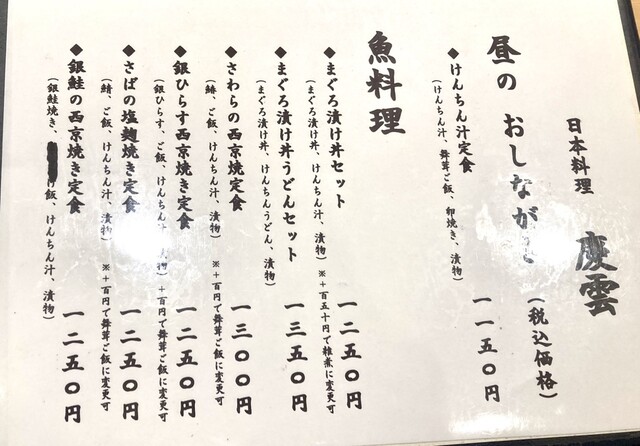 日本料理 慶雲
昼の おしながき (税込価格)
◆けんちん汁定食 一一五〇円
(けんちん汁、舞茸ご飯、卵焼き、漬物)
魚料理
◆まぐろ漬け丼セット 一二五〇円
(まぐろ漬け丼、けんちん汁、漬物) ※+百五十円で雑煮に変更可
◆まぐろ漬け丼うどんセット 一三五〇円
(まぐろ漬け丼、けんちんうどん、漬物)
◆さわらの西京焼定食 一三〇〇円
(鰆、ご飯、けんちん汁、漬物) ※+百円で舞茸ご飯に変更可
◆銀ひらす西京焼き定食 一二五〇円
(銀ひらす、ご飯、けんちん汁、漬物) +百円で舞茸ご飯に変更可
◆さばの塩麹焼き定食 一二五〇円
(鯖、ご飯、けんちん汁、漬物) ※+百円で舞茸ご飯に変更可
◆銀鮭の西京焼き定食 一二五〇円
(銀鮭焼き、ご飯、けんちん汁、漬物)